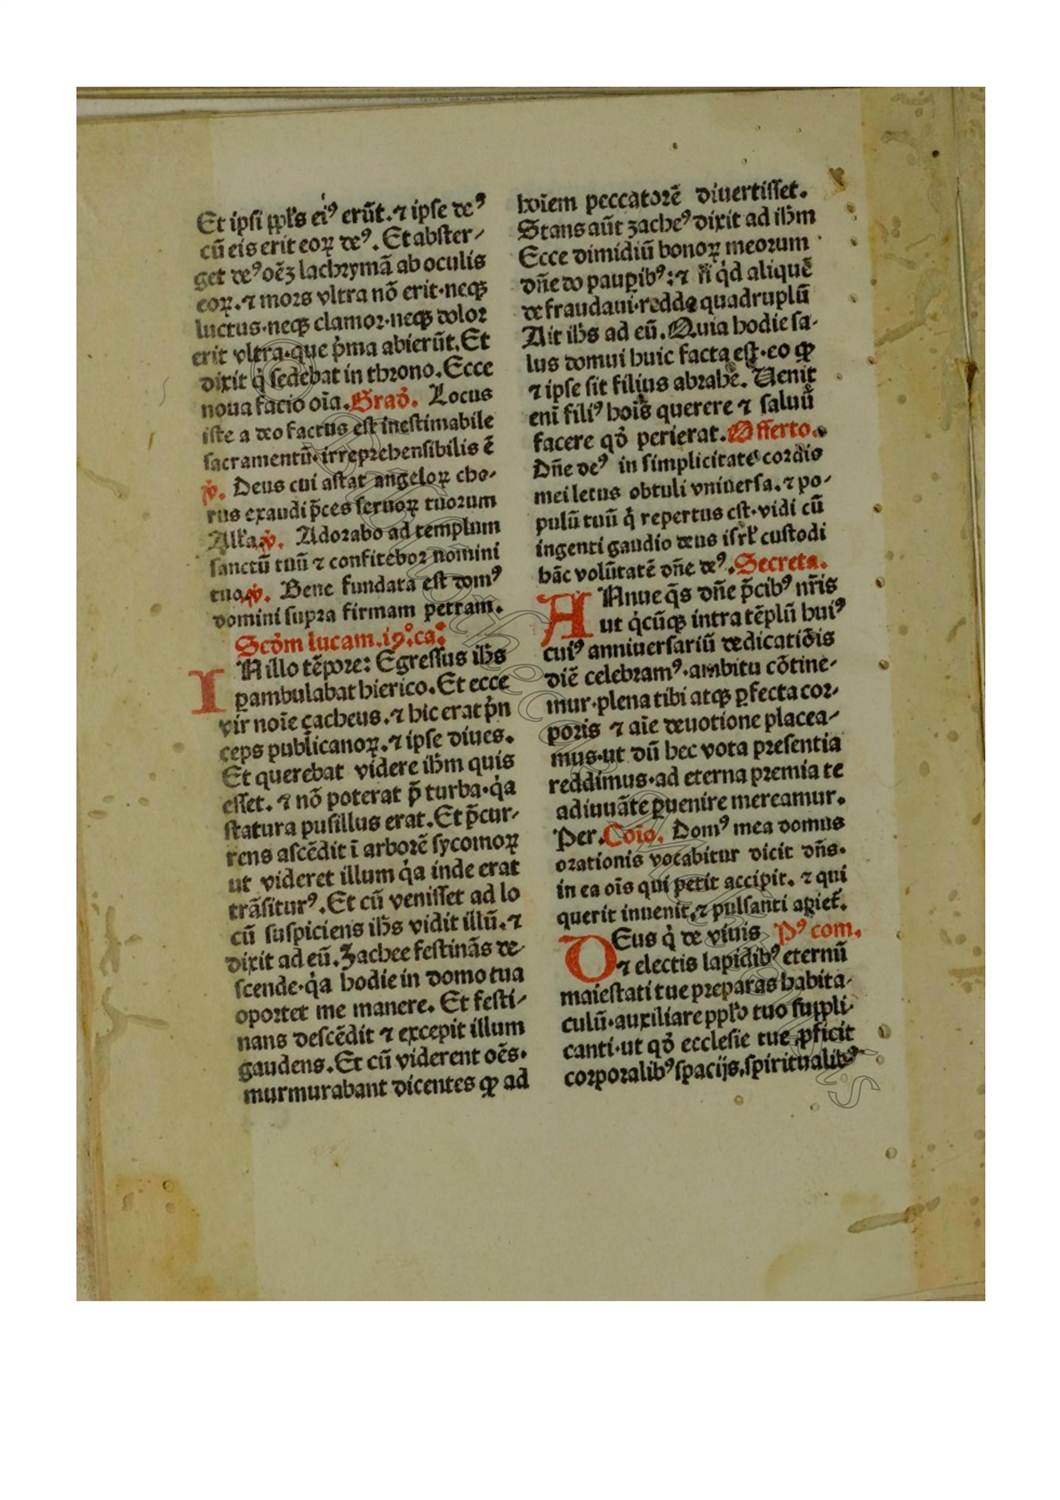 Et ipsi ppl̄s ei⁹ erūt.⁊ ipse de⁹
cū eis erit eoꝝ de⁹. Et abster⸗
get de⁹ oēꝫ lachrymā ab oculis
eoꝝ.⁊ mors vltra nō erit·neqꝫ
luctus·neqꝫ clamor·neqꝫ dolor
erit vltra·que p̄ma abierūt.Et
dixit q̇ sedebat in throno.Ecce
noua facio oīa.Grad̄. Locus
iste a deo factus est inestimabile
sacramentū·irreprehensibilis ē
℣. Deus cui astat angeloꝝ cho⸗
rus exaudi p̄ces seruoꝝ tuorum
Alľa ℣. Adorabo ad templum
sanctū tuū ⁊ confitebor nomini
tuo ℣. Bene fundata est dom⁹
domini supra firmam petram.
Scḋm lucam.19.ca.
IN illo tēpore: Egressus ih̄s
ꝑambulabat hierico.Et ecce
vir noīe zacheus.⁊ hic erat pn̄
ceps publicanoꝝ.⁊ ipse diues.
Et querebat videre ih̄m quis
esset. ⁊ nō poterat p̄ turba·q̇a
statura pusillus erat.Et p̄cur⸗
rens ascēdit ī arborē sycomoꝝ
ut videret illum q̇a inde erat
trāsitur⁹.Et cū venisset ad lo
cū suspiciens ih̄s vidit illū.⁊
dixit ad eū.Zachee festinās de⸗
scende·q̇a hodie in domo tua
oportet me manere. Et festi⸗
nans descēdit ⁊ excepit illum
gaudens.Et cū viderent oēs·
murmurabant dicentes ꝙ ad
hoīem peccatorē diuertisset.
Stans aūt zache⁹ dixit ad ih̄m
Ecce dimidiū bonoꝝ meorum
dn̄e do pauꝑib⁹:⁊ si q̇d aliquē
defraudaui·reddo quadruplū
Ait ih̄s ad eū.Quia hodie sa⸗
lus domui huic facta est·eo ꝙ
⁊ ipse sit filius abrahe. Uenit
enī fili⁹ hoīs querere ⁊ saluū
facere qḋ perierat.Offerto.
Dn̄e de⁹ in simplicitate cordis
mei letus obtuli vniuersa.⁊ po⸗
pulū tuū q̇ repertus est·vidi cū
ingenti gaudio deus isrľ custodi
hāc volūtatē dn̄e de⁹.Secreta.
ANnue q̄s dn̄e p̄cib⁹ nr̄is
ut q̇cūqꝫ intra tēplū hui⁹
cui⁹ anniuersariū dedicatiōis
diē celebram⁹·ambitu cōtine⸗
mur·plena tibi atqꝫ ꝑfecta cor⸗
poris ⁊ aīe deuotione placea⸗
mus·ut dū hec vota presentia
reddimus·ad eterna premia te
adiuuāte ꝑuenire mereamur.
Per.Coīo. Dom⁹ mea domus
orationis vocabitur dicit dn̄s.
in ea oīs qui petit accipit. ⁊ qui
querit inuenit.⁊ pulsanti apiet̄.
DEus q̇ de viuis P⁹ com.
⁊ electis lapidib⁹ eternū
maiestati tue preparas habita⸗
culū·auxiliare ppľo tuo suppli⸗
canti·ut qḋ ecclesie tue ꝓficit
corporalib⁹ spacijs.spiritualib⁹